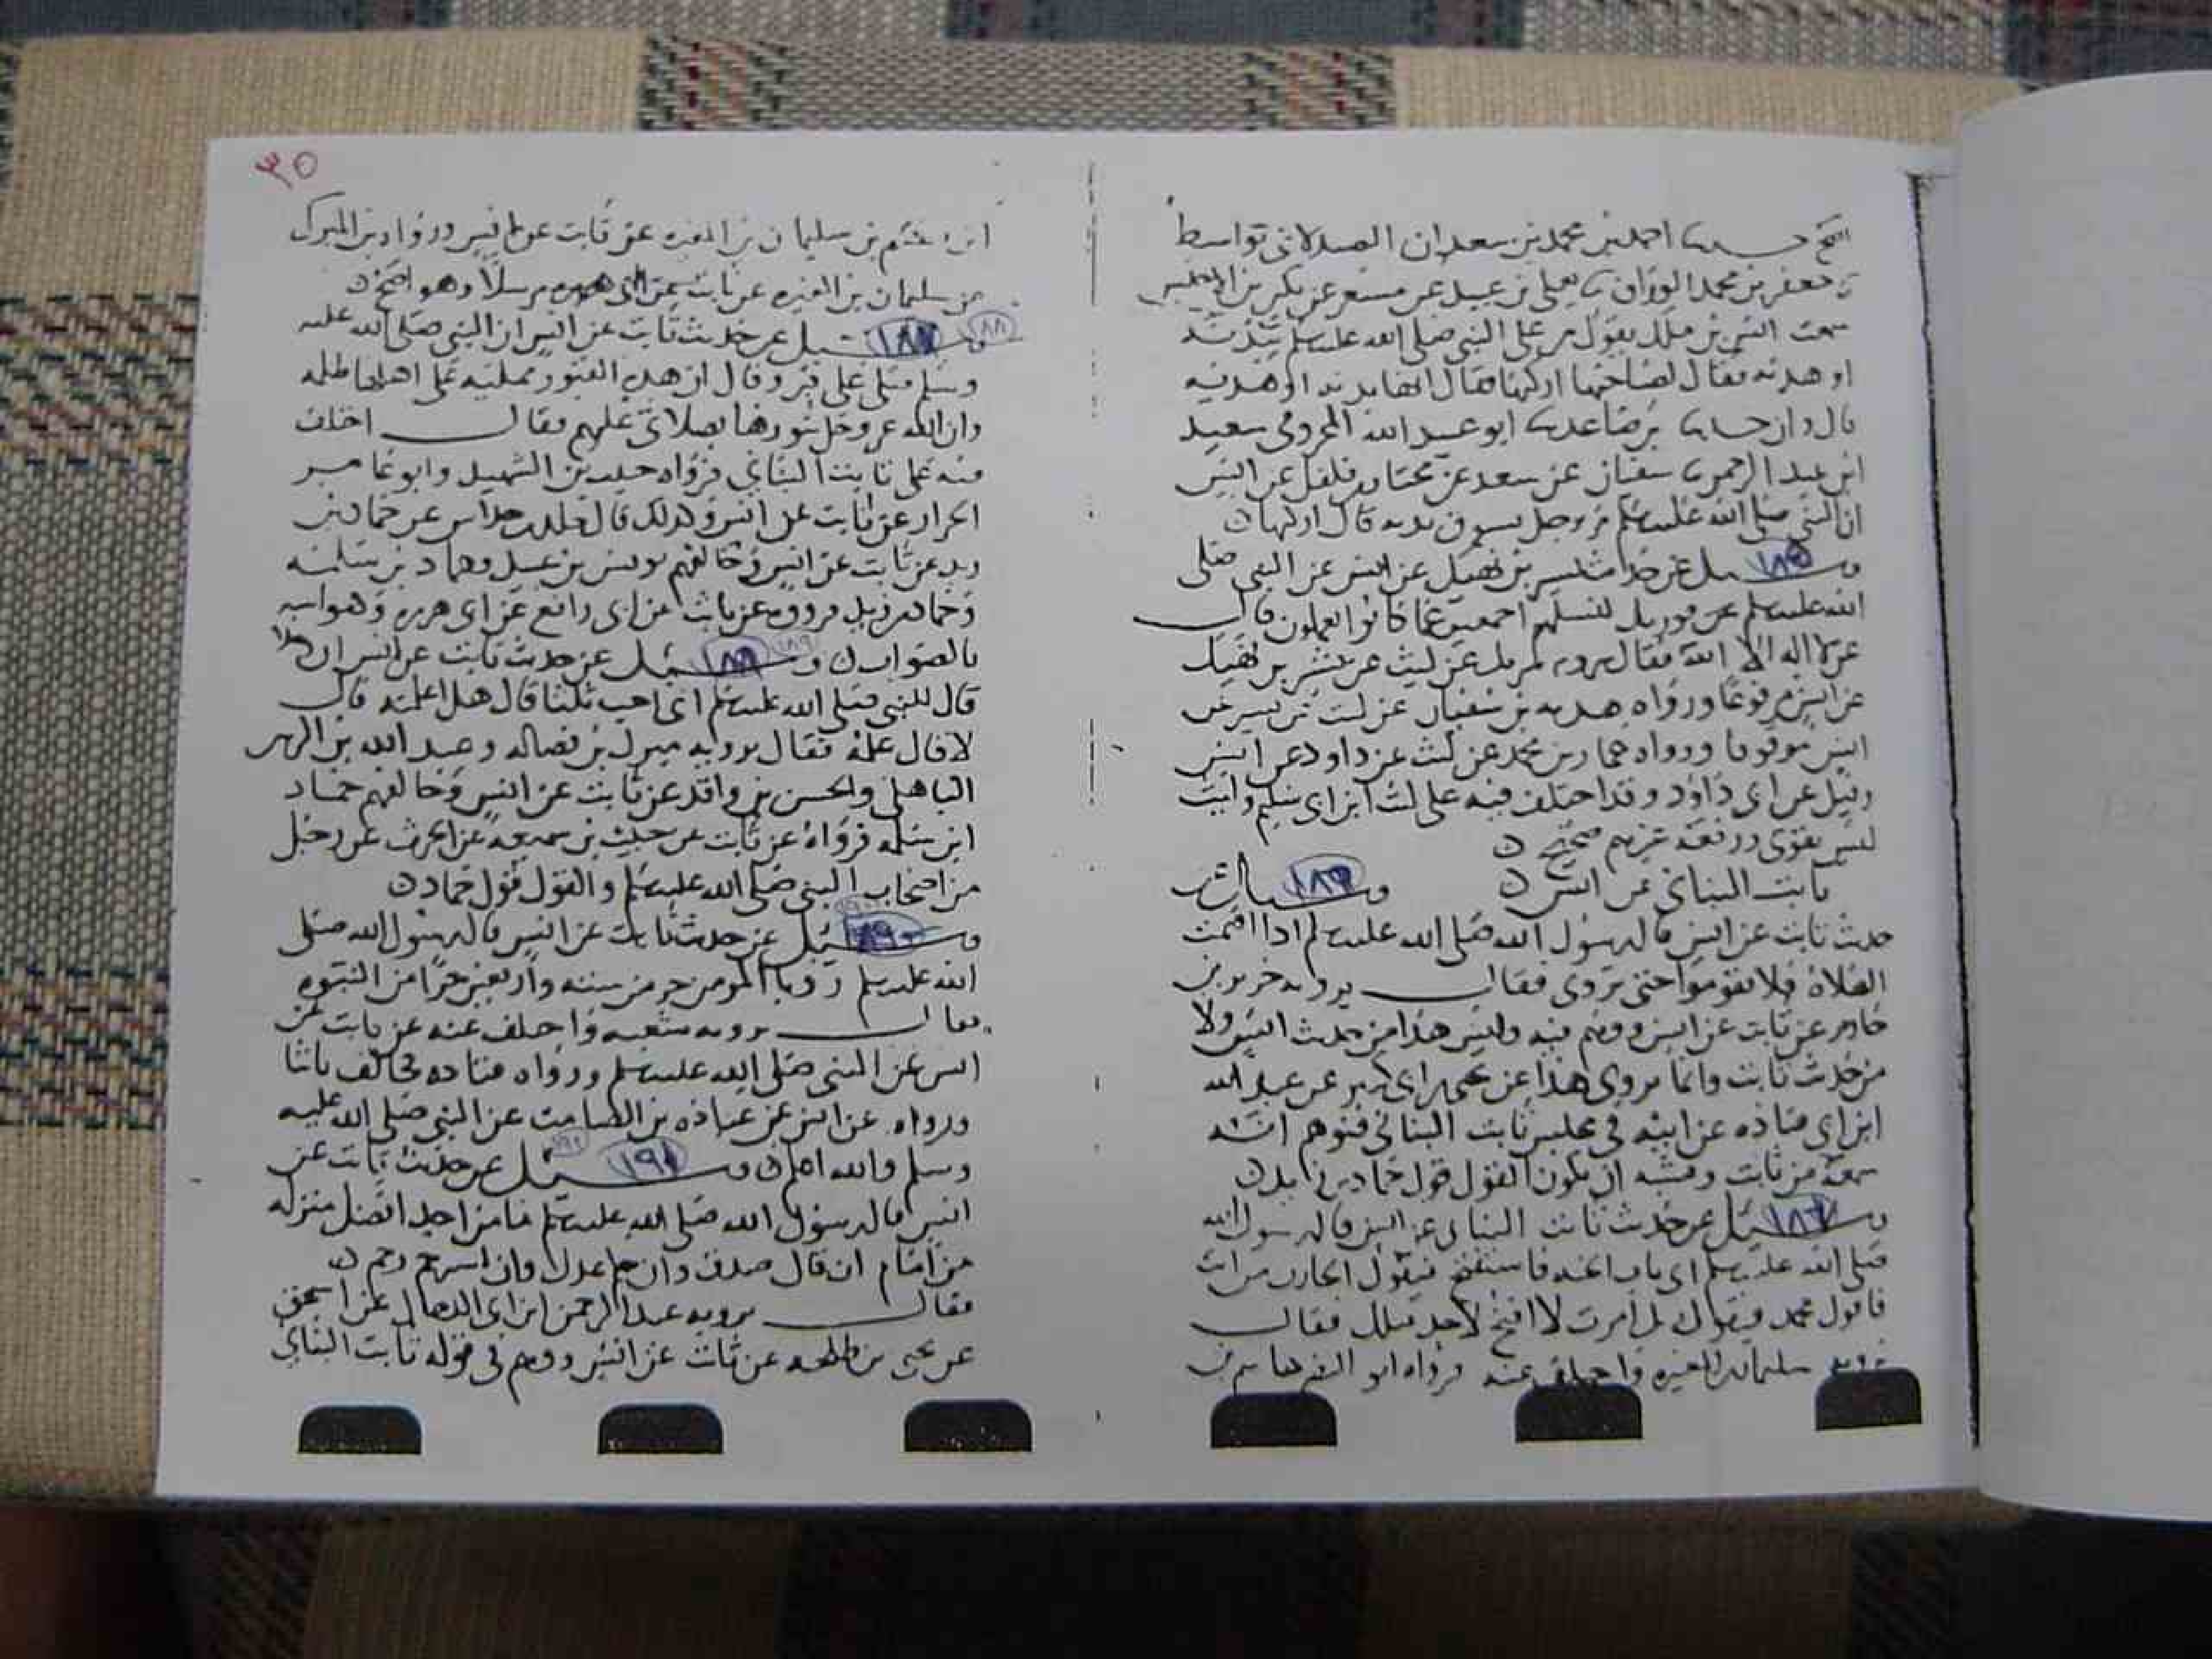 اصح حدثنا احمد بن محمد بن سعدان الصيدلاني بواسط
جعفر بن محمد الوزان يعلى بن عبيد عن مسعر عن بكير بن الاخنس
سمعت انس بن ملك يقول مر على النبي صلى الله عليه وسلم ببدنة
او هدية فقال لصاحبها اركبها فقال انها بدنة او هدية
قال وان حدثنا بن صاعد ابو عبيد الله المخزومي سعيد
ابن عبد الرحمن سفيان عن مسعر عن مختار بن فلفل عن انس
ان النبي صلى الله عليه وسلم مر برجل يسوق بدنة قال اركبها ن
١٨٥ وسئل عن حديث بشير بن نهيك عن انس عن النبي صلى
الله عليه وسلم عن فوربك لنسئلنهم اجمعين عما كانوا يعملون قال
عن لا اله الا الله فقال يرويه عن ليث عن بشر بن نهيك
عن انس مرفوعا ورواه عن ليث عن بشير عن
انس موقوفا ورواه عمار بن محمد عن ليث عن داود عن انس
وقيل عن ابي داود وقد اختلف فيه على ليث ابن ابي سليم وليث
ليس بقوي ورفعه غير صحيح ن
ثابت البناني عن انس ن ١٨٦ وسئل عن
حديث ثابت عن انس قال رسول الله صلى الله عليه وسلم اذا اقيمت
الصلاة فلا تقوموا حتى تروني فقال يرويه جرير بن
حازم عن ثابت عن انس ووهم فيه وليس هذا من حديث انس ولا
من حديث ثابت وانما يروي هذا عن يحيى بن ابي كثير عن عبد الله
ابن ابي قتاده عن ابيه في مجلس ثابت البناني فتوهم انه
سمعه من ثابت ويشبه ان يكون القول قول حماد بن زيد ن
١٨٧ وسئل عن حديث ثابت البناني عن انس قال رسول الله
صلى الله عليه وسلم اتي باب الجنه فاستفتح فيقول الخازن من انت
فاقول محمد فيقول بك امرت لا افتح لاحد قبلك فقال
يرويه سليمان بن المغيره واختلف عنه فرواه ابو النضر هاشم بن
٣٥
عن ثابت عن انس ورواه بن المبرك
عن سليمان بن المغيره عن ثابت مرسلا وهو اصح ن
١٨٨ وسئل عن حديث ثابت عن انس ان النبي صلى الله عليه
وسلم صلى على قبر وقال ان هذه القبور ممتليه على اهلها ظلمه
وان الله عز وجل ينورها بصلاتي عليهم فقال اختلف
فيه على ثابت البناني فرواه حبيب بن الشهيد وابو عامر
الخزاز عن ثابت عن انس وكذلك قال خالد بن خداش عن حماد بن
زيد عن ثابت عن انس وخالفهم يونس بن عبيد وحماد بن سلمه
وحماد بن زيد فرووه عن ثابت عن ابي رافع عن ابي هريره وهو اشبه
بالصواب ن ١٨٩ وسئل عن حديث ثابت عن انس ان رجلا
قال للنبي صلى الله عليه وسلم اني احب فلانا قال هل اعلمته قال
لا قال اعلمه فقال يرويه مبرك بن فضاله وعبد الله بن الزبير
الباهلي والحسن بن واقد عن ثابت عن انس وخالفهم حماد
ابن سلمه فرواه عن ثابت عن حبيب بن سبيعه عن الحرث عن رجل
من اصحاب النبي صلى الله عليه وسلم والقول قول حماد ن
١٩٠ وسئل عن حديث ثابت عن انس قال رسول الله صلى
الله عليه وسلم رويا المومن جزو من سته واربعين جزا من النبوه
فقال يرويه شعبه واختلف عنه عن ثابت عن
انس عن النبي صلى الله عليه وسلم ورواه قتاده فخالف ثابتا
ورواه عن انس عن عباده بن الصامت عن النبي صلى الله عليه
وسلم والله اعلم ن ١٩١ وسئل عن حديث ثابت عن
انس قال رسول الله صلى الله عليه وسلم ما من احد افضل منزله
من امام ان قال صدق وان حكم عدل وان استرحم رحم ن
فقال يرويه عبد الرحمن ابن ابي عن اسحق
عن يحيى بن طلحه عن ثابت عن انس ووهم في قوله ثابت البناني